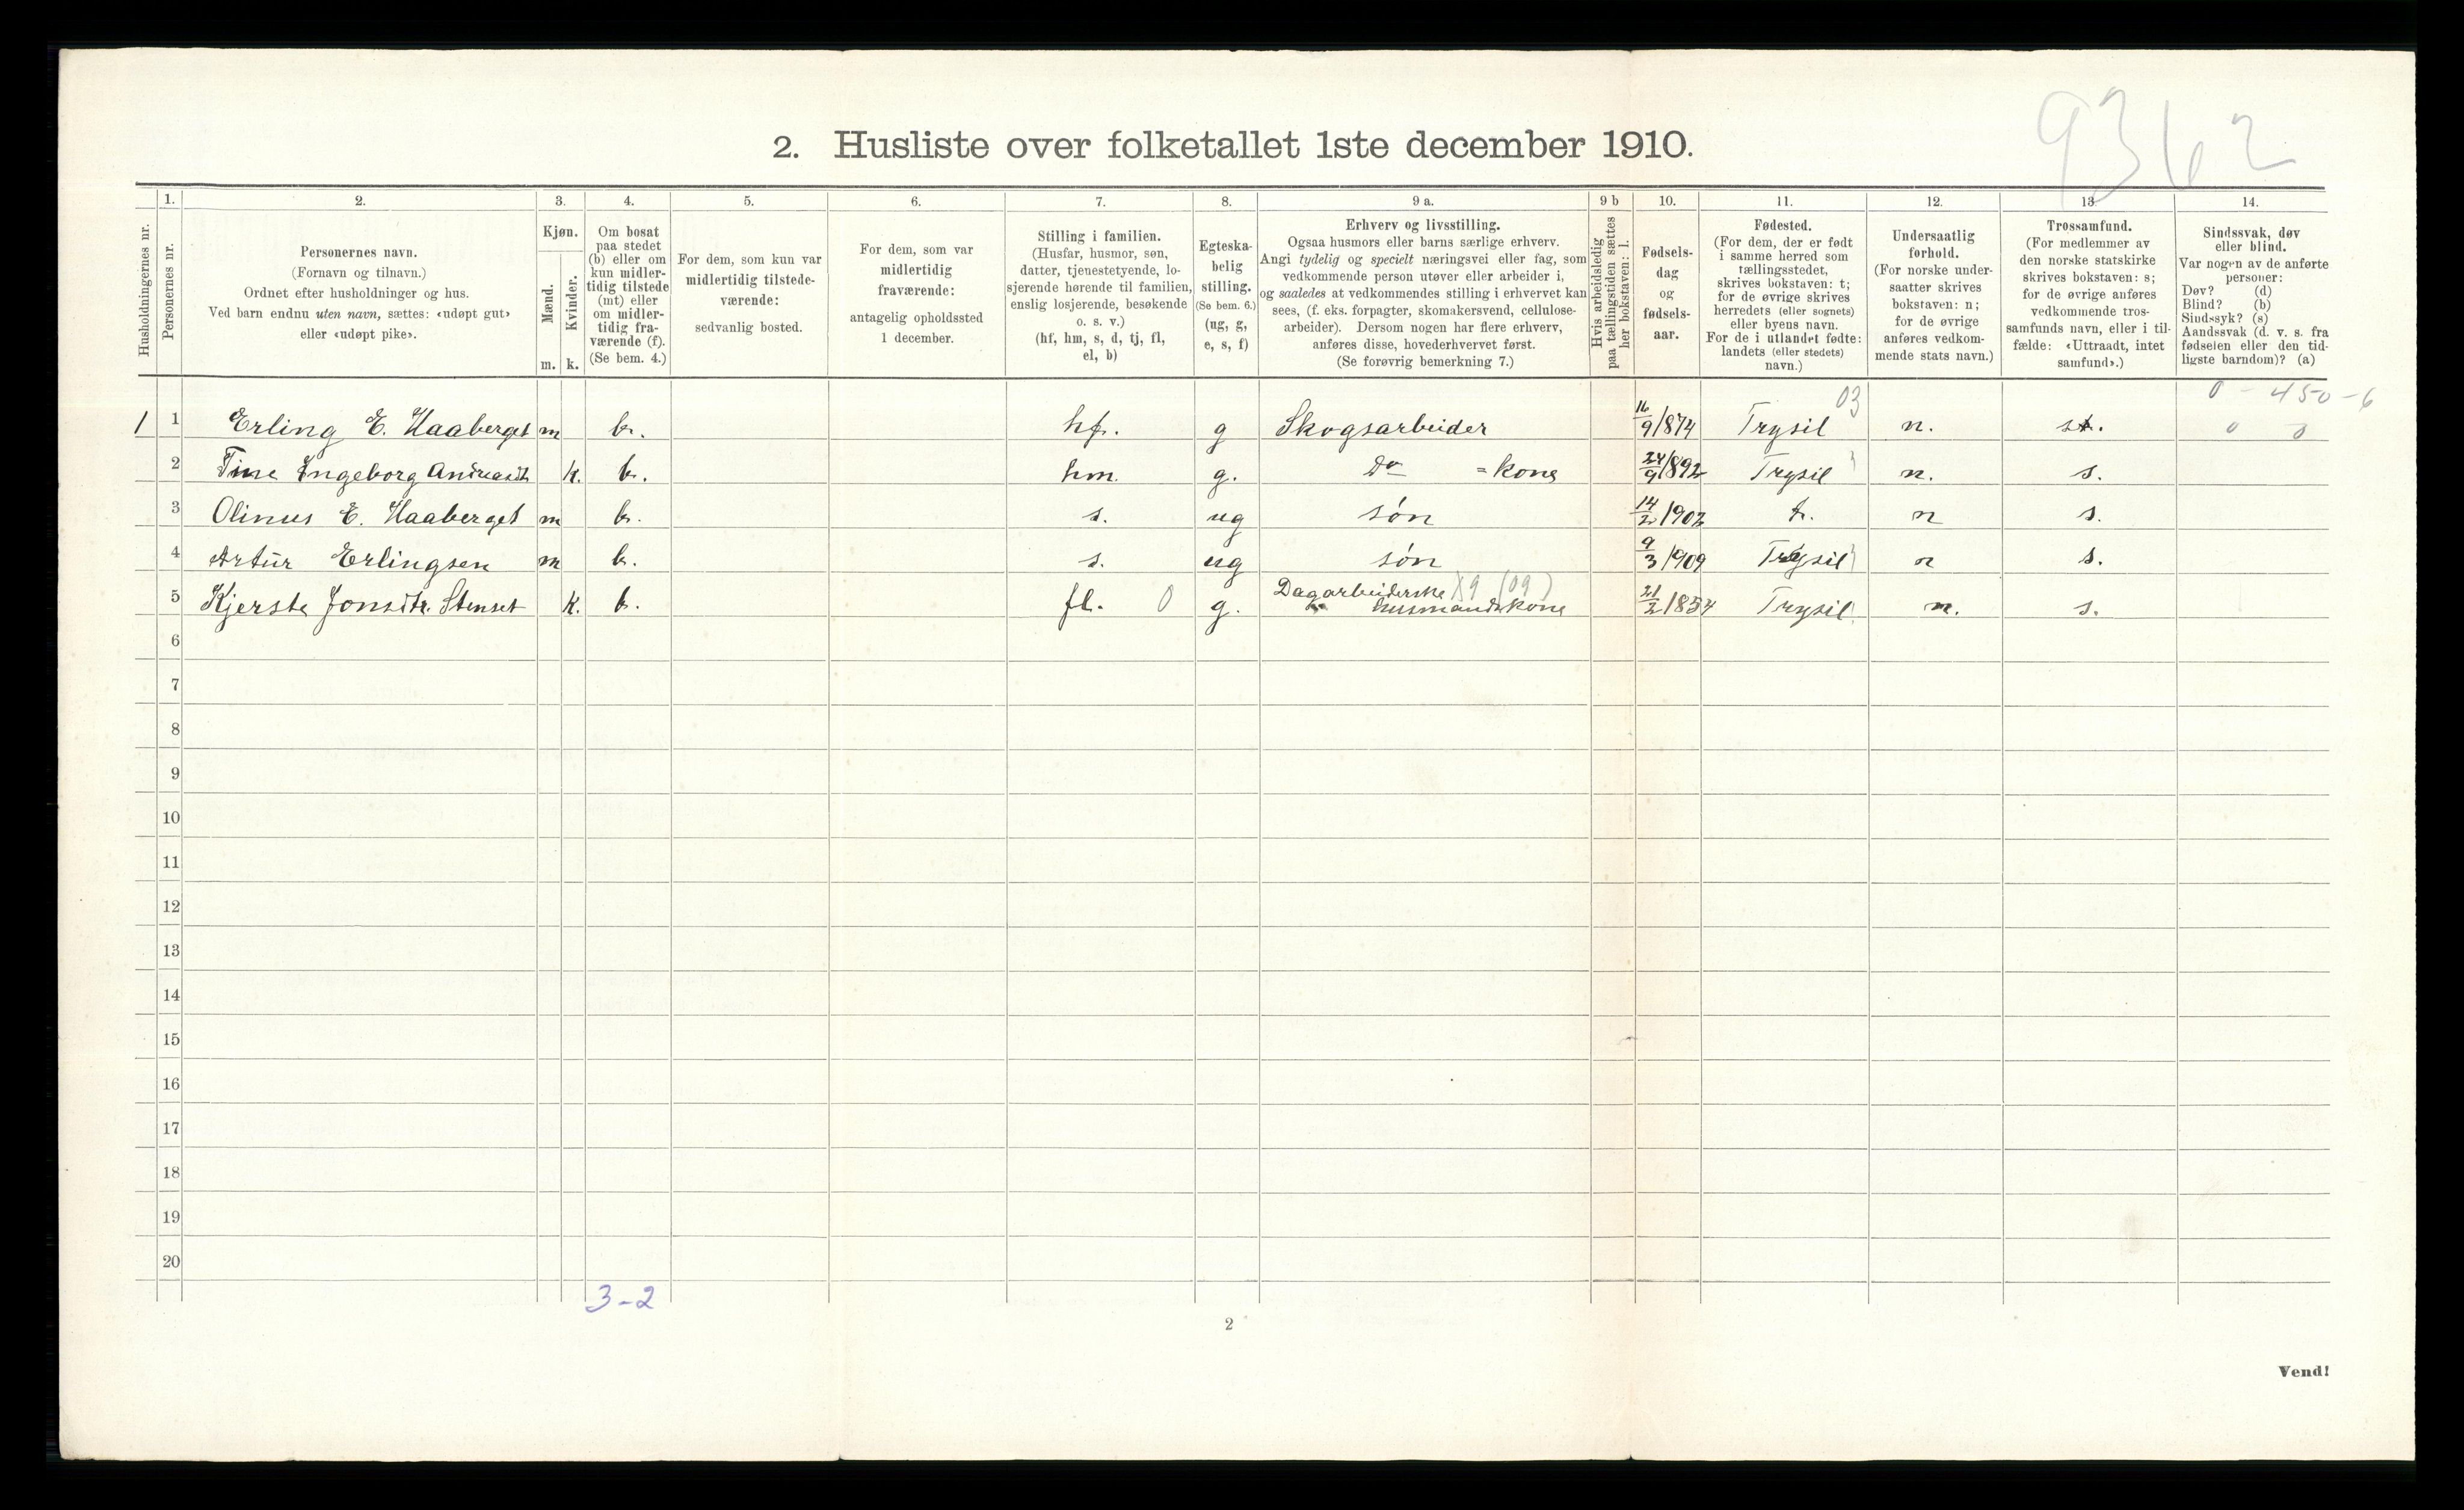 9362
2. Husliste over folketallet 1ste december 1910.
Husholdningernes nr.
1.
Personernes nr.
2.
Personernes navn.
(Fornavn og tilnavn.)
Ordnet efter husholdninger og hus.
Ved barn endnu uten navn, sættes: «udøpt gut»
eller «udøpt pike».
3.
Kjøn.
Mænd.
Kvinder.
m. k.
4.
Om bosat
paa stedet
(b) eller om
kun midler-
tidig tilstede
(mt) eller
om midler-
tidig fra-
værende (f).
(Se bem. 4.)
5.
For dem, som kun var
midlertidig tilstede-
værende:
sedvanlig bosted.
6.
For dem, som var
midlertidig
fraværende:
antagelig opholdssted
1 december.
7.
Stilling i familien.
(Husfar, husmor, søn,
datter, tjenestetyende, lo-
sjerende hørende til familien,
enslig losjerende, besøkende
o. s. v.)
(hf, hm, s, d, tj, fl,
el, b)
8.
Egteska-
belig
stilling.
(Se bem. 6.)
(ug, g,
e, s, f)
9 a.
Erhverv og livsstilling.
Ogsaa husmors eller barns særlige erhverv.
Angi tydelig og specielt næringsvei eller fag, som
vedkommende person utøver eller arbeider i,
og saaledes at vedkommendes stilling i erhvervet kan
sees, (f. eks. forpagter, skomakersvend, cellulose-
arbeider). Dersom nogen har flere erhverv,
anføres disse, hovederhvervet først.
(Se forøvrig bemerkning 7.)
9 b
Hvis arbeidsledig
paa tællingstiden sættes
her bokstaven: l.
10.
Fødsels-
dag
og
fødsels-
aar.
11.
Fødested.
(For dem, der er født
i samme herred som
tællingsstedet,
skrives bokstaven: t;
for de øvrige skrives
herredets (eller sognets)
eller byens navn.
For de i utlandet fødte:
landets (eller stedets)
navn.)
12.
Undersaatlig
forhold.
(For norske under-
saatter skrives
bokstaven: n;
for de øvrige
anføres vedkom-
mende stats navn.)
13.
Trossamfund.
(For medlemmer av
den norske statskirke
skrives bokstaven: s;
for de øvrige anføres
vedkommende tros-
samfunds navn, eller i til-
fælde: «Uttraadt, intet
samfund».)
14.
Sindssvak, døv
eller blind.
Var nogen av de anførte
personer:
Døv? (d)
Blind? (b)
Sindssyk? (s)
Aandssvak (d. v. s. fra
fødselen eller den tid-
ligste barndom)? (a)
03 0 - 450-6
1 1 Erling E. Haaberget m b. hf. g Skogsarbeider 16/9/874 Trysil n. s. 0 0
2 Tine Ingeborg Andreasdt k. b. hm. g. Do =kone 24/9/892 Trysil n. s.
3 Olinus E. Haaberget m b. s. ug søn 14/2/902 t. n s.
4 Artur Erlingsen m b. s. ug søn 9/3/909 Trysil n s.
5 Kjerste Jonsdtr. Stenset k. b. fl. 0 g. Dagarbeiderske X9 (09)
husmandskone 21/2/854 Trysil n. s.
6
7
8
9
10
11
12
13
14
15
16
17
18
19
20
3-2
2
Vend!